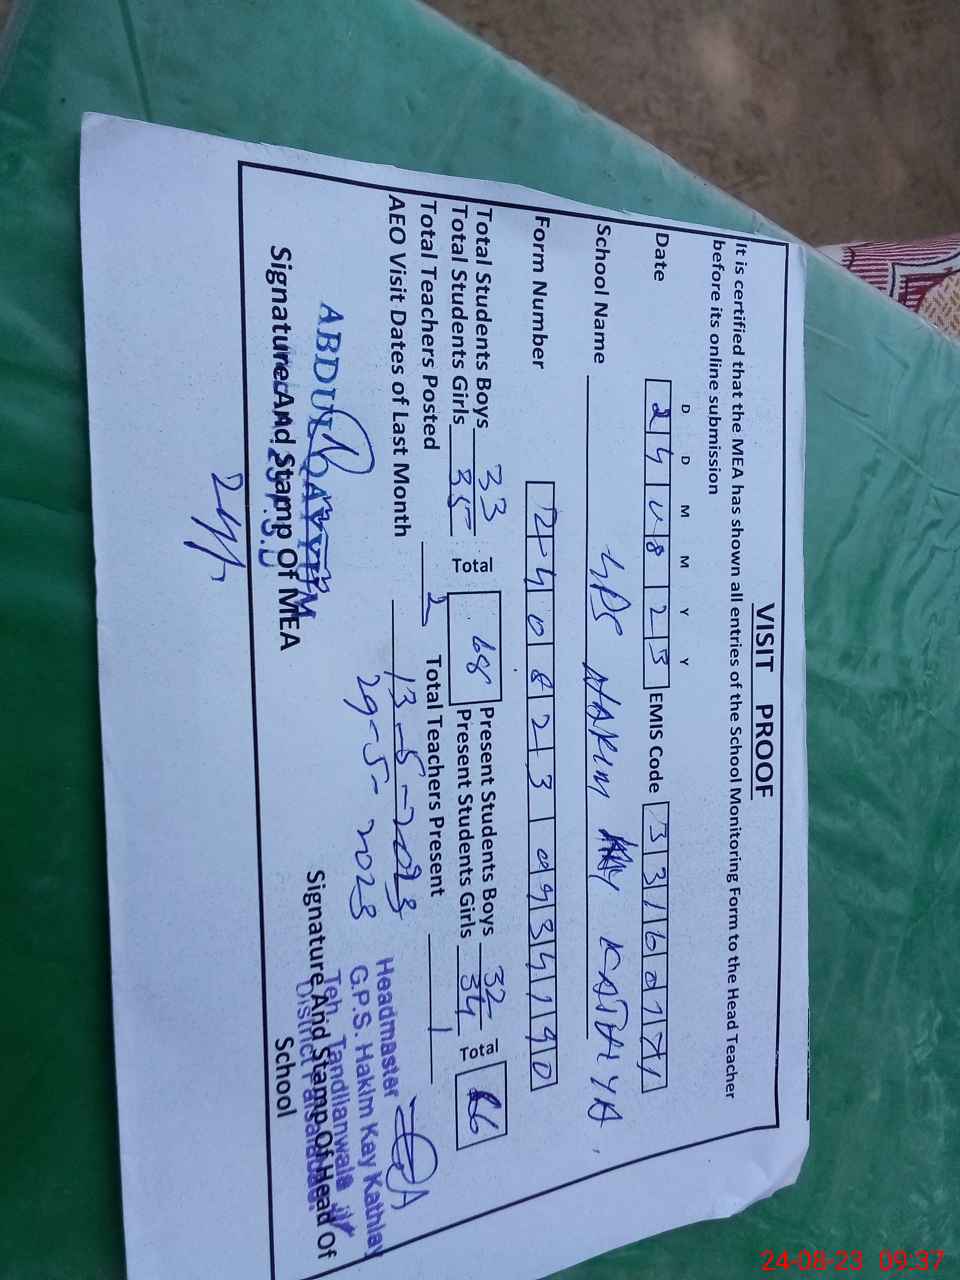 VISIT PROOF
It is certified that the MEA has shown all entries of the School Monitoring Form to the Head Teacher
before its online submission
D D M M Y Y
Date 24 08 23 EMIS Code 3316017
School Name GPS HAKIM KAY KATHLYA
Form Number 240823 0934190
Total Students Boys 33 Total 68 Present Students Boys 32 Total 66
Total Students Girls 35 Present Students Girls 34
Total Teachers Posted 2 Total Teachers Present 1
AEO Visit Dates of Last Month 13-5-2023
29-5-2023
ABDUL QAYYUM
Signature And Stamp Of MEA
Headmaster
G.P.S. Hakim Kay Kathlay
Teh. Tandlianwala
District Faisalabad
Signature And Stamp Of Head Of
School
24-08-23 09:37